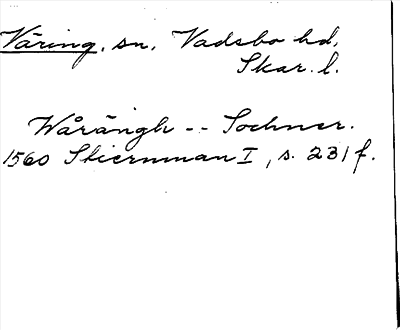 Väring, sn, Vadsbo hd,
Skar. l.
Wårängh -- Sochner.
1560 Stiernman I, s. 231 f.